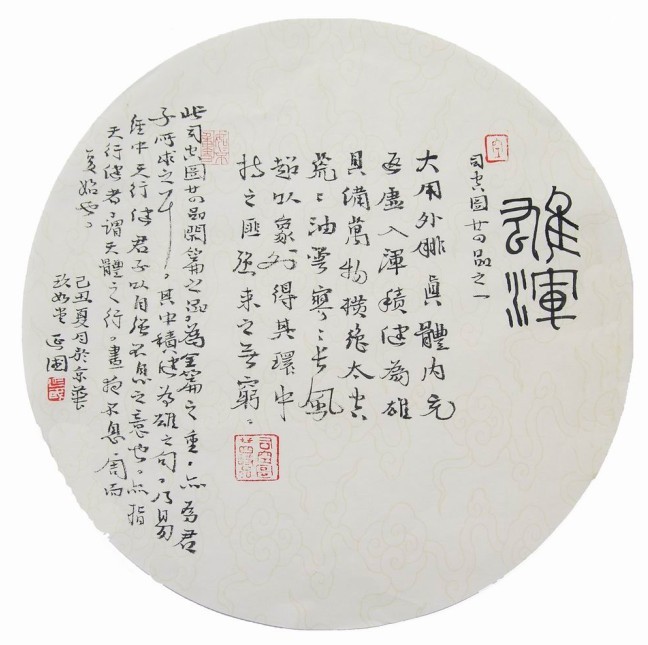 雄渾
司空圖廿四品之一
大用外腓真體內充
返虛入渾積健為雄
具備萬物橫絕太空
荒〻油雲寥〻長風
超以象外得其環中
持之匪強來之無窮。
此司空圖廿四品開篇之品，為全篇之重，亦為君
子所求之，其中積健為雄之句，乃易
經中天行健君子以自強不息之意也。亦指
天行健者，謂天體之行，晝夜不息，周而
復始也。
己丑夏月於京華